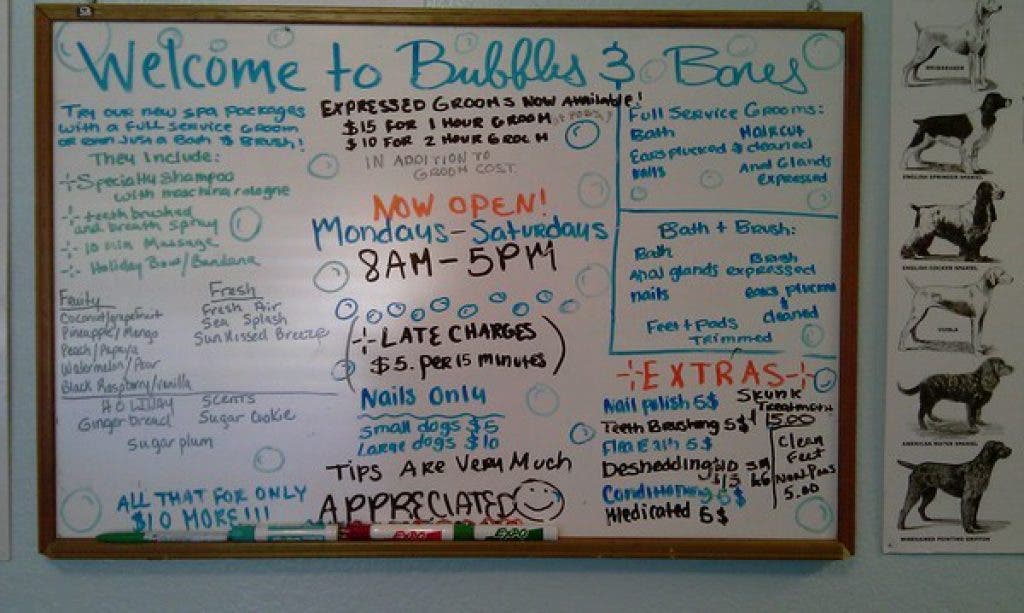 Welcome to Bubbles & Bones
TRY OUR NEW SPA PACKAGES
WITH A FULL SERVICE GROOM
OR EVEN JUST A BATH & BRUSH!
They Include:
Specialty Shampoo
with matching cologne
teeth brushed
and breath spray
10 min Massage
Holiday Bow/Bandana
Fruity
Coconut/grapefruit
Pineapple/Mango
Peach/Papaya
Watermelon/Pear
Black Raspberry/Vanilla
Fresh
Fresh Air
Sea Splash
Sun Kissed Breeze
HOLIDAY SCENTS
Gingerbread Sugar Cookie
Sugar plum
ALL THAT FOR ONLY
$10 MORE!!!
EXPRESSED GROOMS NOW AVAILABLE!
$15 FOR 1 HOUR GROOM
$10 FOR 2 HOUR GROOM
IN ADDITION TO
GROOM COST
NOW OPEN!
Mondays-Saturdays
8AM-5PM
LATE CHARGES
$5. PER 15 MINUTES
Nails Only
Small dogs $5
Large dogs $10
TIPS ARE VERY MUCH
APPRECIATED
Full Service Grooms:
Bath Haircut
Ears plucked & cleaned
nails Anal Glands
Expressed
Bath + Brush:
Bath Brush
Anal glands expressed
nails ears plucked
&
cleaned
Feet + pads
Trimmed
EXTRAS
Nail polish 5$
Teeth Brushing 5$
Flea Bath 5$
Deshedding $10 sm
$15 LG
Conditioning 5$
Medicated 5$
Skunk
Treatment
15.00
Clean
Feet
Nails/Pads
5.00
EXPO
EXPO
WEIMARANER
ENGLISH SPRINGER SPANIEL
ENGLISH COCKER SPANIEL
VIZSLA
AMERICAN WATER SPANIEL
WIREHAIRED POINTING GRIFFON